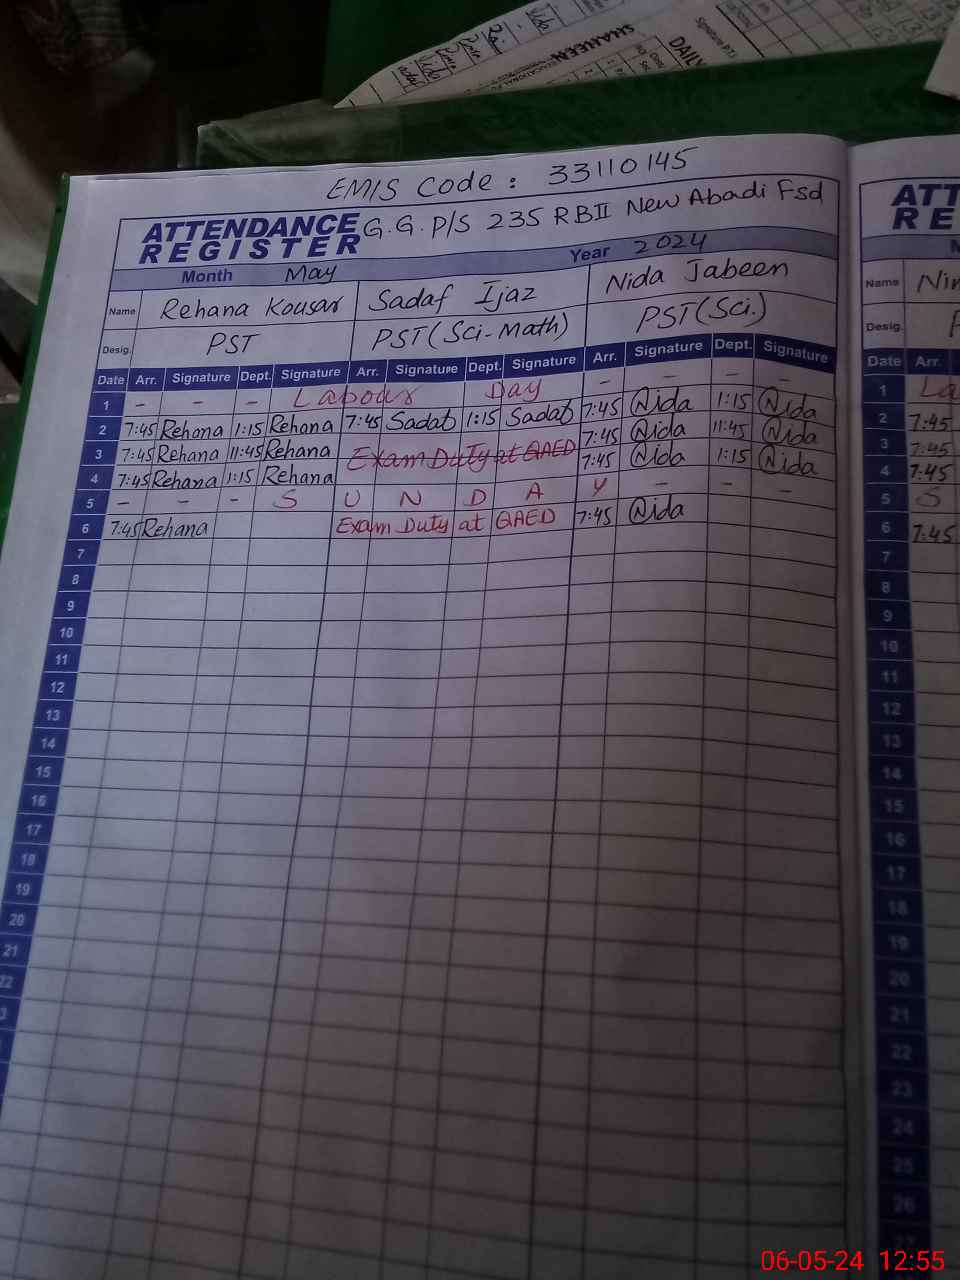 Vida
SHAHEEN
DAILY
EMIS Code : 33110145
ATTENDANCE REGISTER G.G.P/S 235 RBII New Abadi Fsd
Month May Year 2024
Name Rehana Kousar Sadaf Ijaz Nida Jabeen
Desig. PST PST (Sci-Math) PST (Sci.)
Date Arr. Signature Dept. Signature Arr. Signature Dept. Signature Arr. Signature Dept. Signature
1 - - - Labour Day - - - -
2 7:45 Rehana 1:15 Rehana 7:45 Sadaf 1:15 Sadaf 7:45 Nida 1:15 Nida
3 7:45 Rehana 11:45 Rehana Exam Duty at QAED 7:45 Nida 11:45 Nida
4 7:45 Rehana 1:15 Rehana 7:45 Nida 1:15 Nida
5 - - - S U N D A Y - - -
6 7:45 Rehana Exam Duty at QAED 7:45 Nida
7
8
9
10
11
12
13
14
15
16
17
18
19
20
21
22
3
ATT
RE
Name Nin
Desig. P
Date Arr.
1 La
2 7:45
3 7:45
4 7:45
5 S
6 7:45
7
8
9
10
11
12
13
14
15
16
17
18
19
20
21
22
23
24
25
26
27
06-05-24 12:55